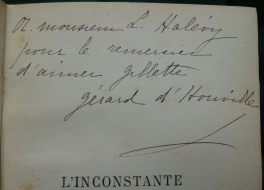 A. monsieur L. Halévy
pour le remercier
d'aimer Gillette
Gérard d'Houville
L'INCONSTANTE